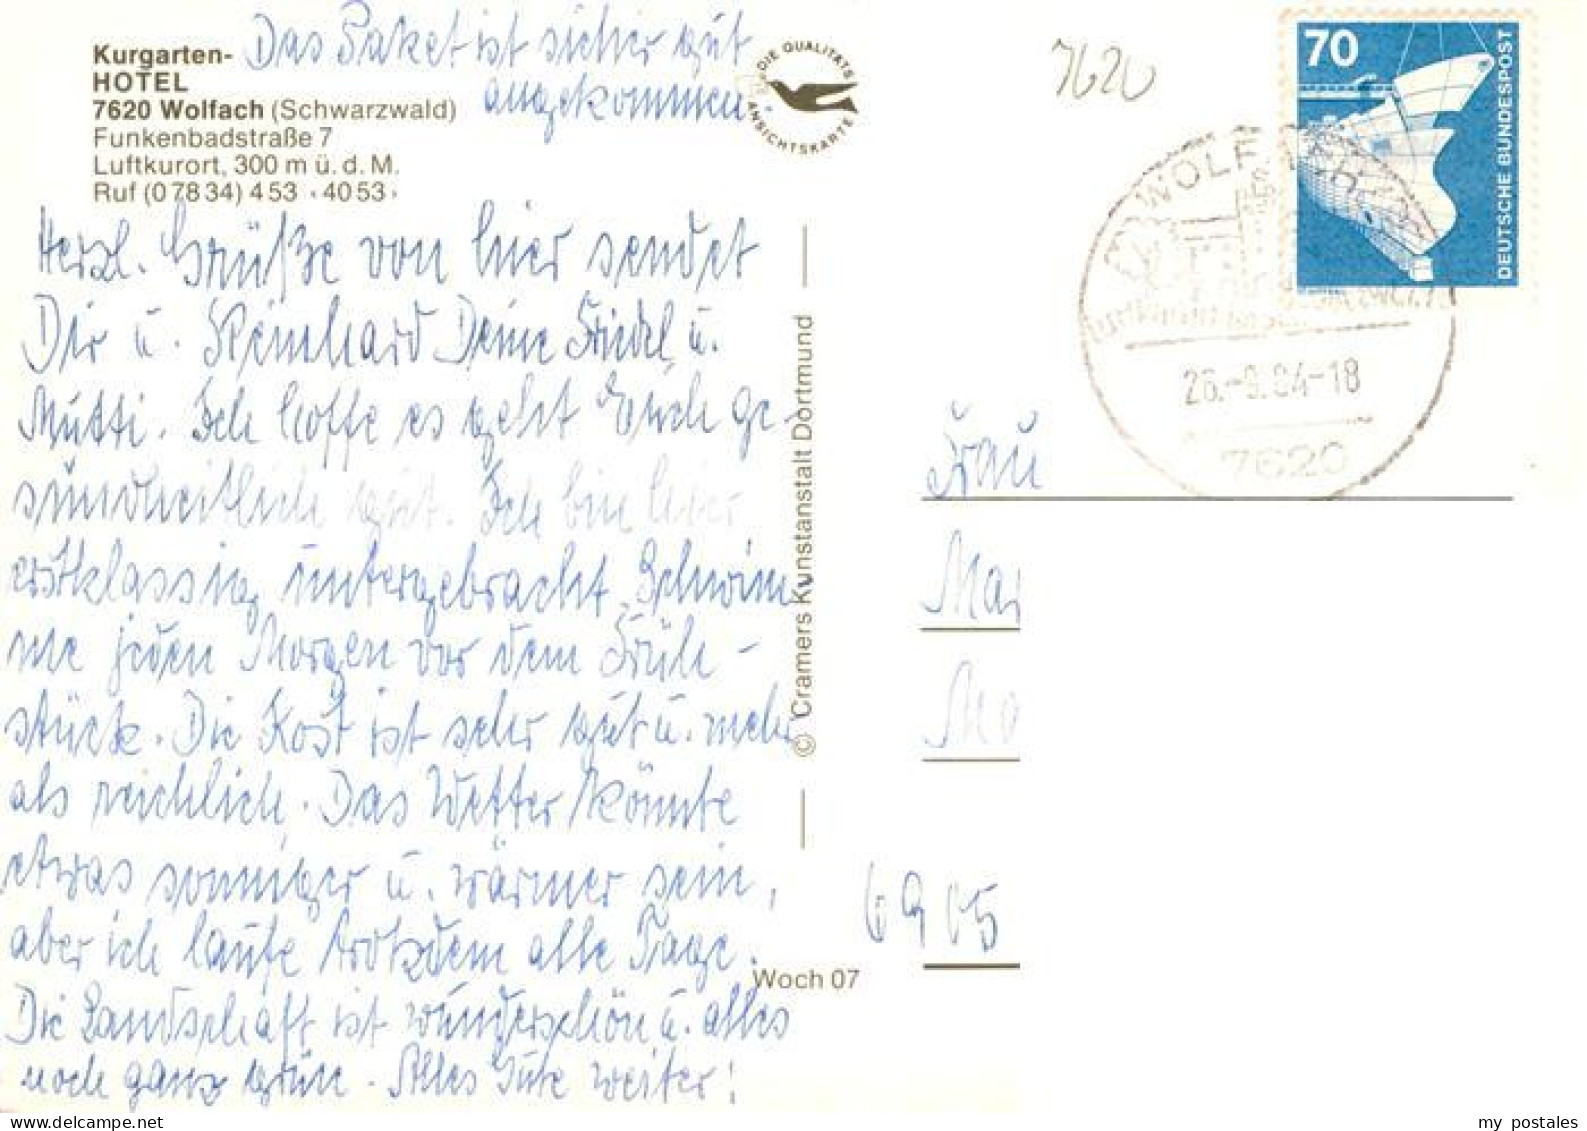 Das Paket ist sicher gut
angekommen
Kurgarten-
HOTEL
7620 Wolfach (Schwarzwald)
Funkenbadstraße 7
Luftkurort, 300 m ü. d. M.
Ruf (0 78 34) 4 53 · 40 53 ·
DIE QUALITÄTS
ANSICHTSKARTE
Herzl. Grüße von hier sendet
Dir u. Reinhard Deine Friedel u.
Mutti. Ich hoffe es geht Euch ge-
sundheitlich gut. Ich bin hier
erstklassig untergebracht. Schwim-
me jeden Morgen vor dem Früh-
stück. Die Kost ist sehr gut u. mehr
als reichlich. Das Wetter könnte
etwas sonniger u. wärmer sein,
aber ich laufe trotzdem alle Tage.
Die Landschaft ist wunderschön u. alles
noch ganz grün. Alles Gute weiter!
© Cramers Kunstanstalt Dortmund
Woch 07
7620
70
DEUTSCHE BUNDESPOST
26.-9.84-18
7620
Frau
6905
my postales